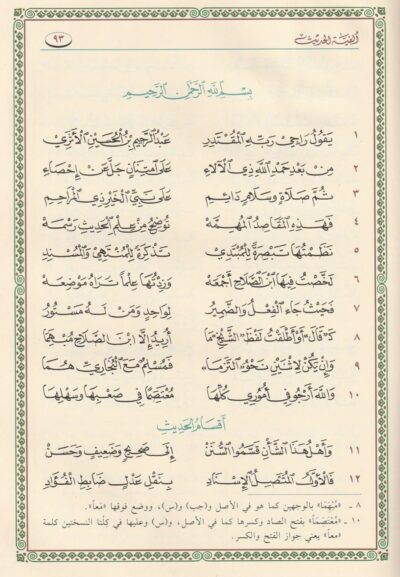 ألفية الحديث
٩٣
بسم الله الرحمن الرحيم
١ يَقُولُ رَاجِي رَبِّهِ الْمُقْتَدِرِ عَبْدُ الرَّحِيمِ بْنُ الْحُسَيْنِ الْأَثَرِيْ
٢ مِنْ بَعْدِ حَمْدِ اللَّهِ ذِي الْآلَاءِ عَلَى امْتِنَانٍ جَلَّ عَنْ إِحْصَاءِ
٣ ثُمَّ صَلَاةٍ وَسَلَامٍ دَائِمِ عَلَى نَبِيِّ الْخَيْرِ ذِي الْمَرَاحِمِ
٤ فَهَذِهِ الْمَقَاصِدُ الْمُهِمَّهْ تُوضِحُ مِنْ عِلْمِ الْحَدِيثِ رَسْمَهْ
٥ نَظَمْتُهَا تَبْصِرَةً لِلْمُبْتَدِي تَذْكِرَةً لِلْمُنْتَهِي وَالْمُسْنِدِ
٦ لَخَّصْتُ فِيهَا ابْنَ الصَّلَاحِ أَجْمَعَهْ وَزِدْتُهَا عِلْماً تَرَاهُ مَوْضِعَهْ
٧ فَحَيْثُ جَاءَ الْفِعْلُ وَالضَّمِيرُ لِوَاحِدٍ وَمَنْ لَهُ مَسْتُورُ
٨ كـ «قَالَ» أَوْ أَطْلَقْتُ لَفْظَ «الشَّيْخِ» مَا أُرِيدُ إِلَّا ابْنَ الصَّلَاحِ مُبْهِمَا
٩ وَإِنْ يَكُنْ لِاثْنَيْنِ نَحْوُ «الْتَزَمَا» فَمُسْلِمٌ مَعَ الْبُخَارِيِّ هُمَا
١٠ وَاللَّهَ أَرْجُو فِي أُمُورِي كُلِّهَا مُعْتَصَمًا فِي صَعْبِهَا وَسَهْلِهَا
أقسام الحديث
١١ وَأَهْلُ هَذَا الشَّأْنِ قَسَّمُوا السُّنَنْ إِلَى صَحِيحٍ وَضَعِيفٍ وَحَسَنْ
١٢ فَالْأَوَّلُ الْمُتَّصِلُ الْإِسْنَادِ بِنَقْلِ عَدْلٍ ضَابِطِ الْفُؤَادِ
٨ - «مُبْهِمَا» بالوجهين كما هو في الأصل و(جب) و(س)، ووضع فوقها «معاً».
١٠ - «مُعْتَصِماً» بفتح الصاد وكسرها كما في الأصل، و(س) وعليها في كلتا النسختين كلمة
«معاً» يعني جواز الفتح والكسر.